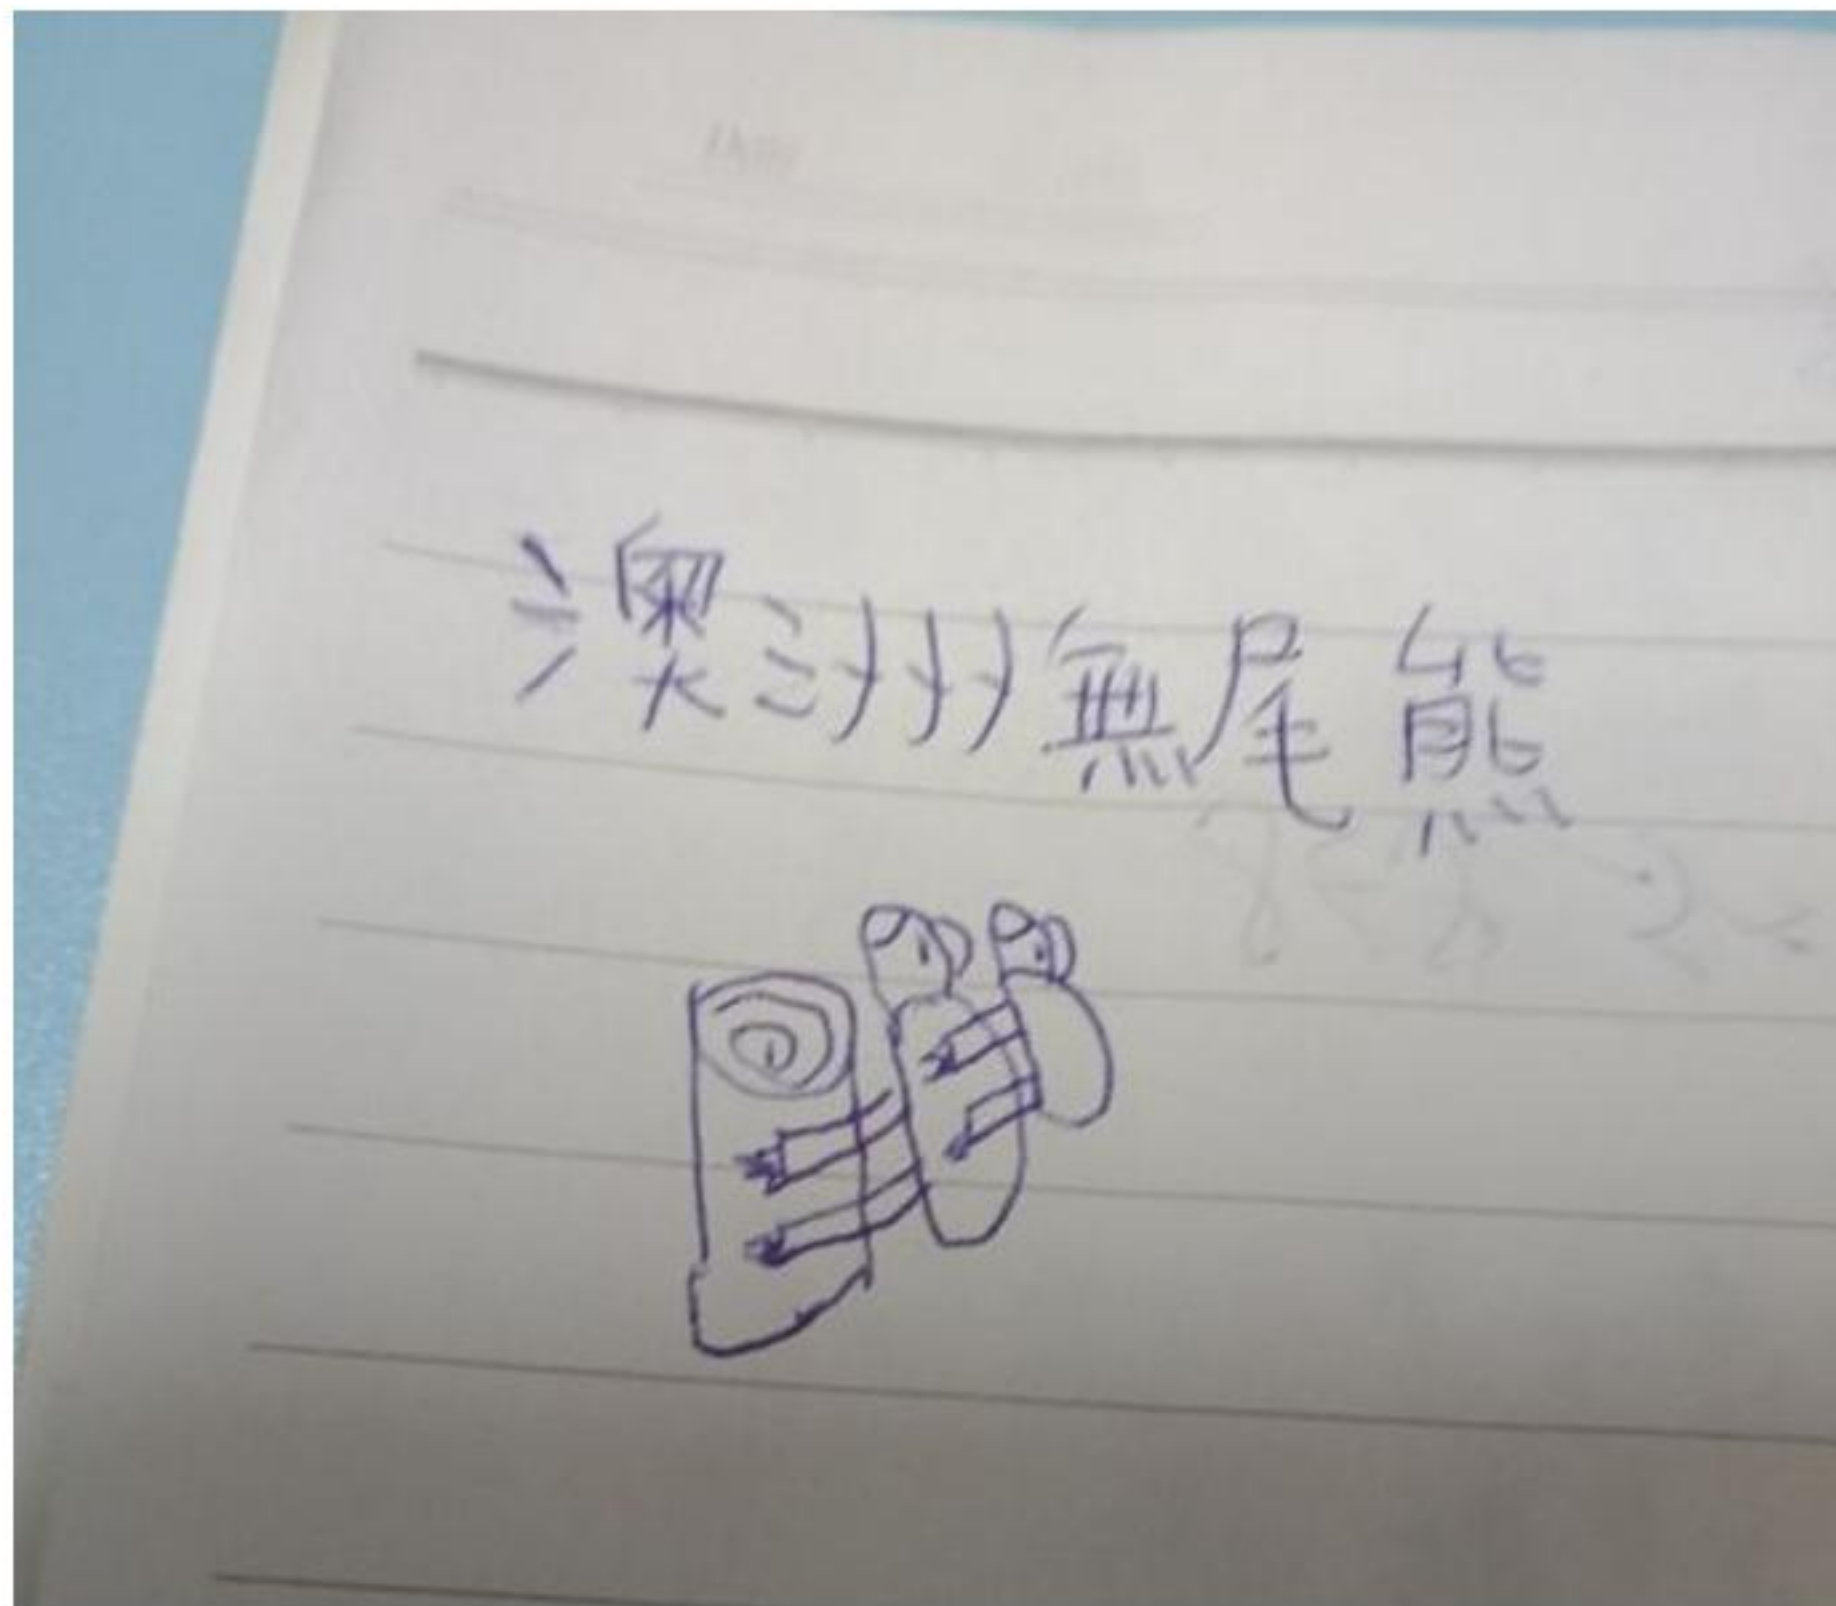 澳洲無尾熊